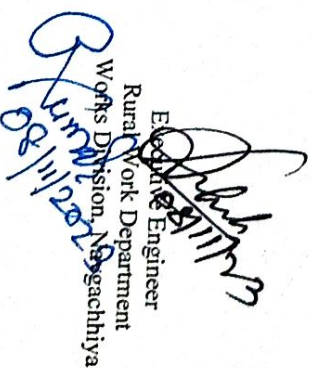 08/11/23
Executive Engineer
Rural Work Department
Works Division, Naugachhiya
Kumar
08/11/2023